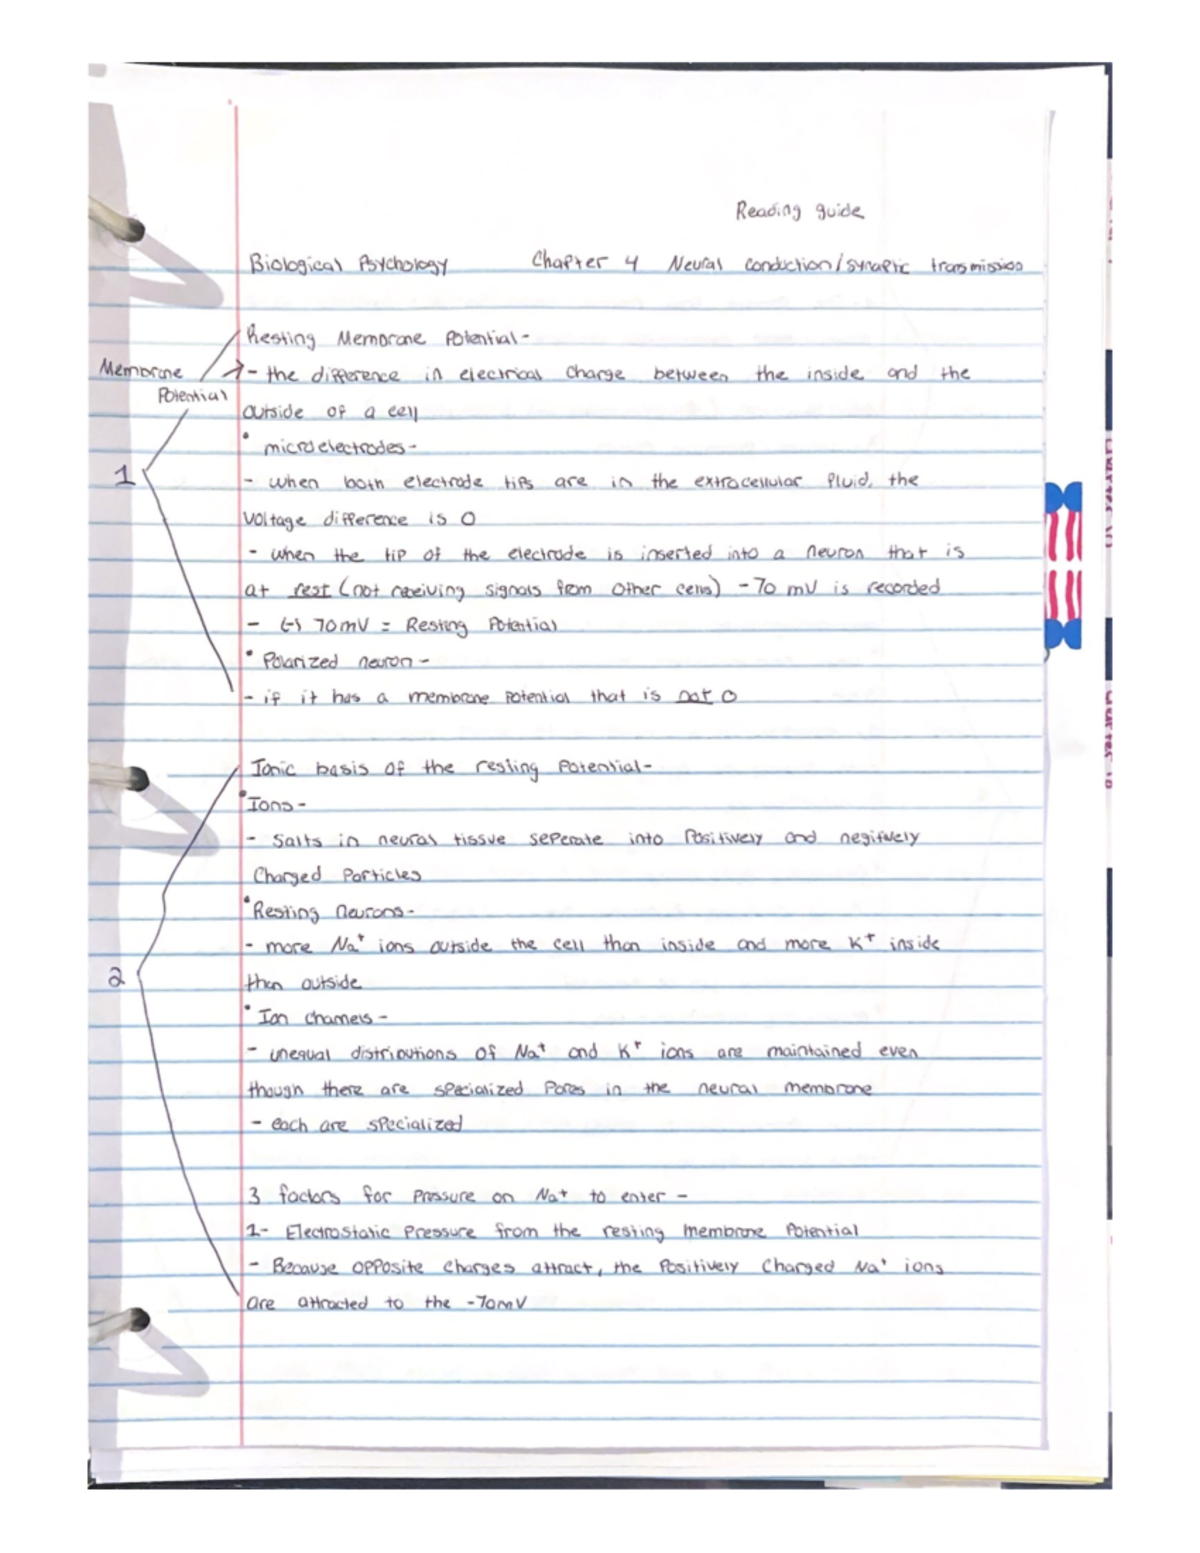 Reading guide
Biological Psychology Chapter 4 Neural conduction/synaptic transmission
Resting Membrane Potential-
Membrane
Potential
- the difference in electrical charge between the inside and the
outside of a cell
• microelectrodes-
1
- when both electrode tips are in the extracellular fluid, the
voltage difference is 0
- when the tip of the electrode is inserted into a neuron that is
at rest (not receiving signals from other cells) -70 mV is recorded
- (-) 70mV = Resting Potential
• Polarized neuron-
- if it has a membrane potential that is not 0
Ionic basis of the resting Potential-
• Ions-
- Salts in neural tissue seperate into Positively and negitively
Charged Particles
• Resting neurons-
- more Na+ ions outside the cell than inside and more K+ inside
than outside
2
• Ion channels-
- unequal distributions of Na+ and K+ ions are maintained even
though there are specialized Pores in the neural membrane
- each are specialized
3 factors for Pressure on Na+ to enter -
1- Electrostatic Pressure from the resting membrane Potential
- Because opposite charges attract, the Positively Charged Na+ ions
are attracted to the -70mV